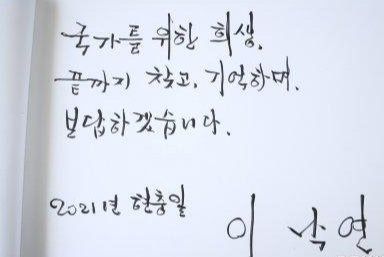 국가를 위한 희생.
끝까지 찾고, 기억하며,
보답하겠습니다.
2021년 현충일
이 낙 연